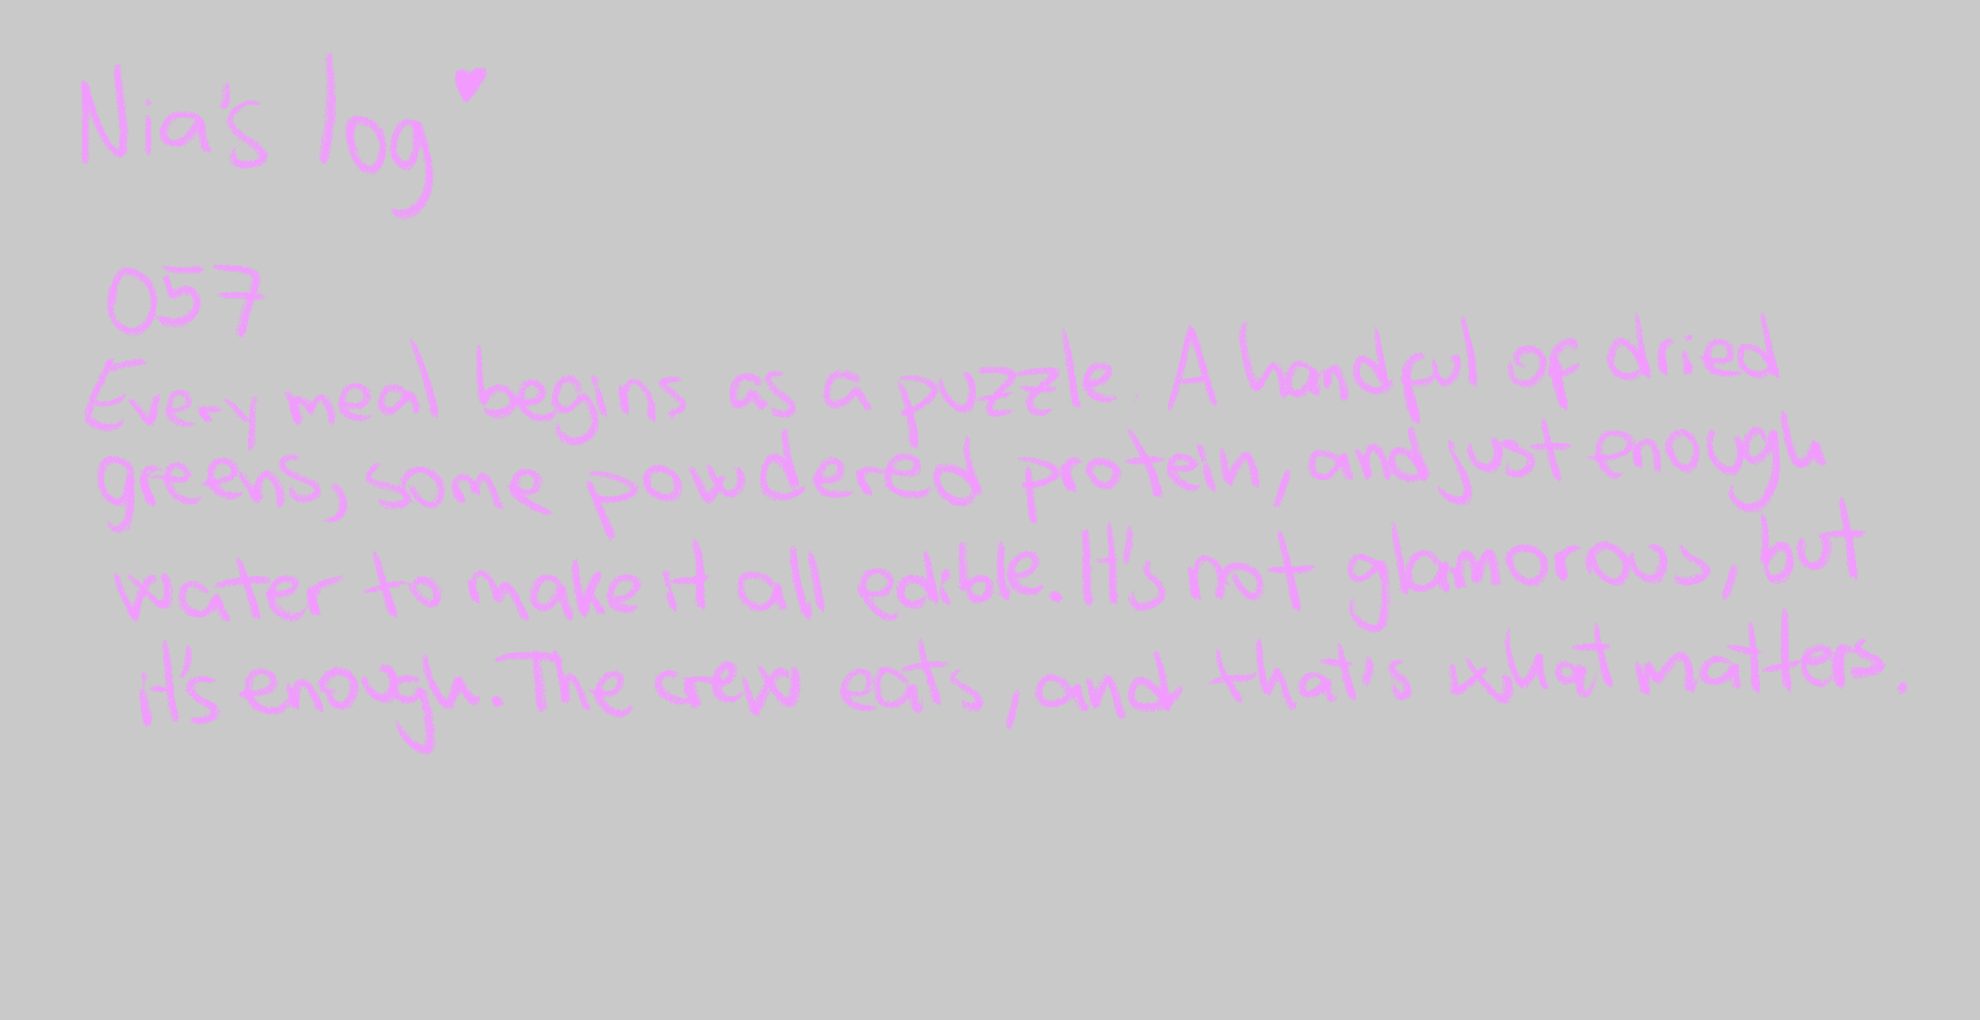 Nia's log ♥
057
Every meal begins as a puzzle. A handful of dried
greens, some powdered protein, and just enough
water to make it all edible. It's not glamorous, but
it's enough. The crew eats, and that's what matters.